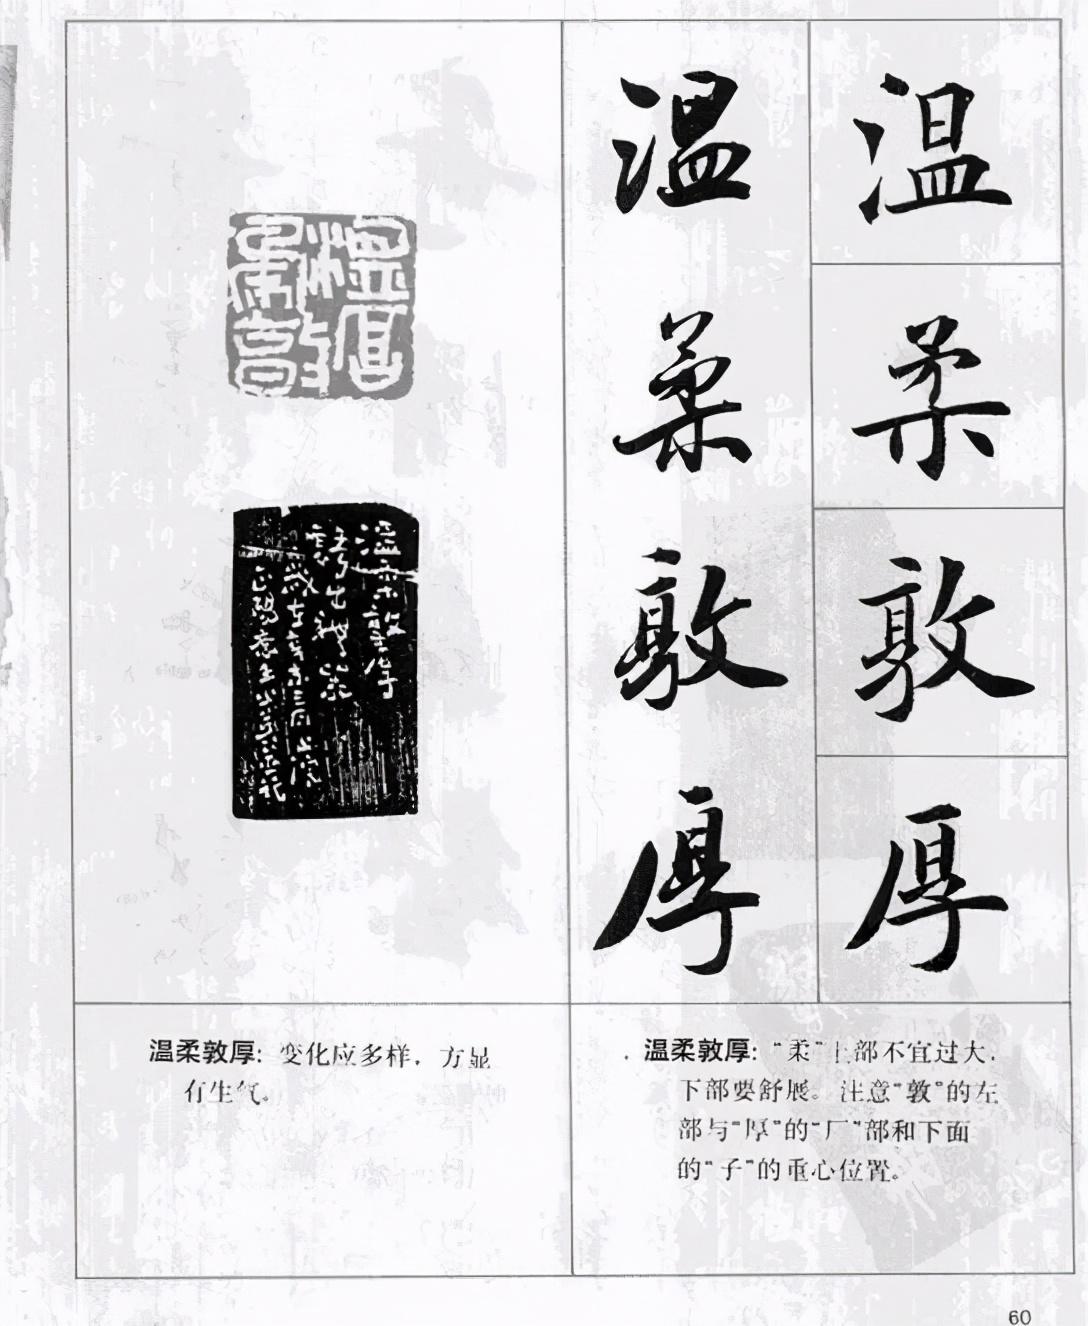 温
柔
敦
厚
温
柔
敦
厚
温柔敦厚
温柔敦厚：变化应多样，方显
有生气。
温柔敦厚：“柔”上部不宜过大，
下部要舒展。注意“敦”的左
部与“厚”的“厂”部和下面
的“子”的重心位置。
60